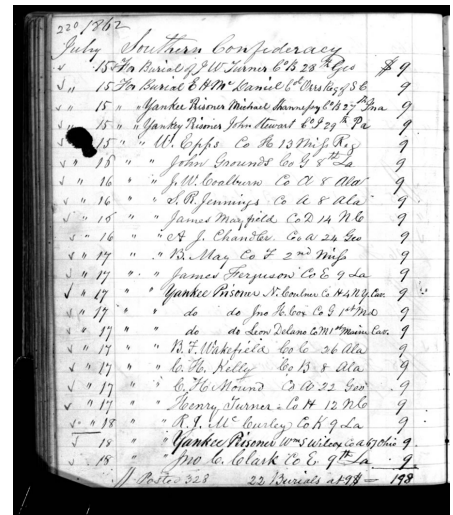 220 1862
July Southern Confederacy
✓ " 15 For Burial of J W Turner Co B 28th Geo $ 9
✓ " 15 For Burial E H McDaniel Co Orrs Reg S C 9
✓ " 15 " " Yankee Prisoner Michael Shannessy Co B 27th Ina 9
✓ " 15 " " Yankey Prisoner John Stewart Co I 29th Pa 9
15 " " W. Epps Co H 13 Miss Reg 9
✓ " 15 " " John Grounds Co G 8th La 9
✓ " 16 " " J. W. Coalburn Co A 8 Ala 9
✓ " 16 " " S. R. Jennings Co A 8 Ala 9
✓ " 15 " " James Mayfield Co D 14 N C 9
✓ " 16 " " A J. Chandler Co A 24 Geo 9
✓ " 17 " " B. May Co F 2nd Miss 9
✓ " 17 " " James Ferguson Co E 9 La 9
✓ " 17 " " Yankee Prisoner N. Coulmer Co H 4 N Y. Cav. 9
✓ " 17 " " do do Jno H. Cox Co G 1st Md 9
✓ " 17 " " do do Leon Delano Co M 1st Maine Cav. 9
✓ " 17 " " B. F. Wakefield Co C 26 Ala 9
✓ " 17 " " C. H. Kelly Co B 8 Ala 9
✓ " 17 " " C. H. Mound Co A 22 Geo 9
✓ " 17 " " Henry Turner Co H 12 N C 9
✓ " 18 " " R. J. McCurley Co K 9 La 9
✓ 18 " " Yankee Prisoner Wm S Wilcox Co A 67 Ohio 9
✓ " 18 " " Jno C. Clark Co E. 9th La 9
Posted 328 22 Burials at 9$ = 198